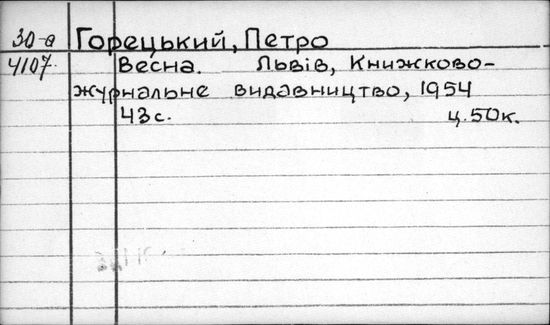 30-а Горецький, Петро
4107 Весна. Львів, Книжково-
журнальне видавництво, 1954
43 с. ц. 50к.